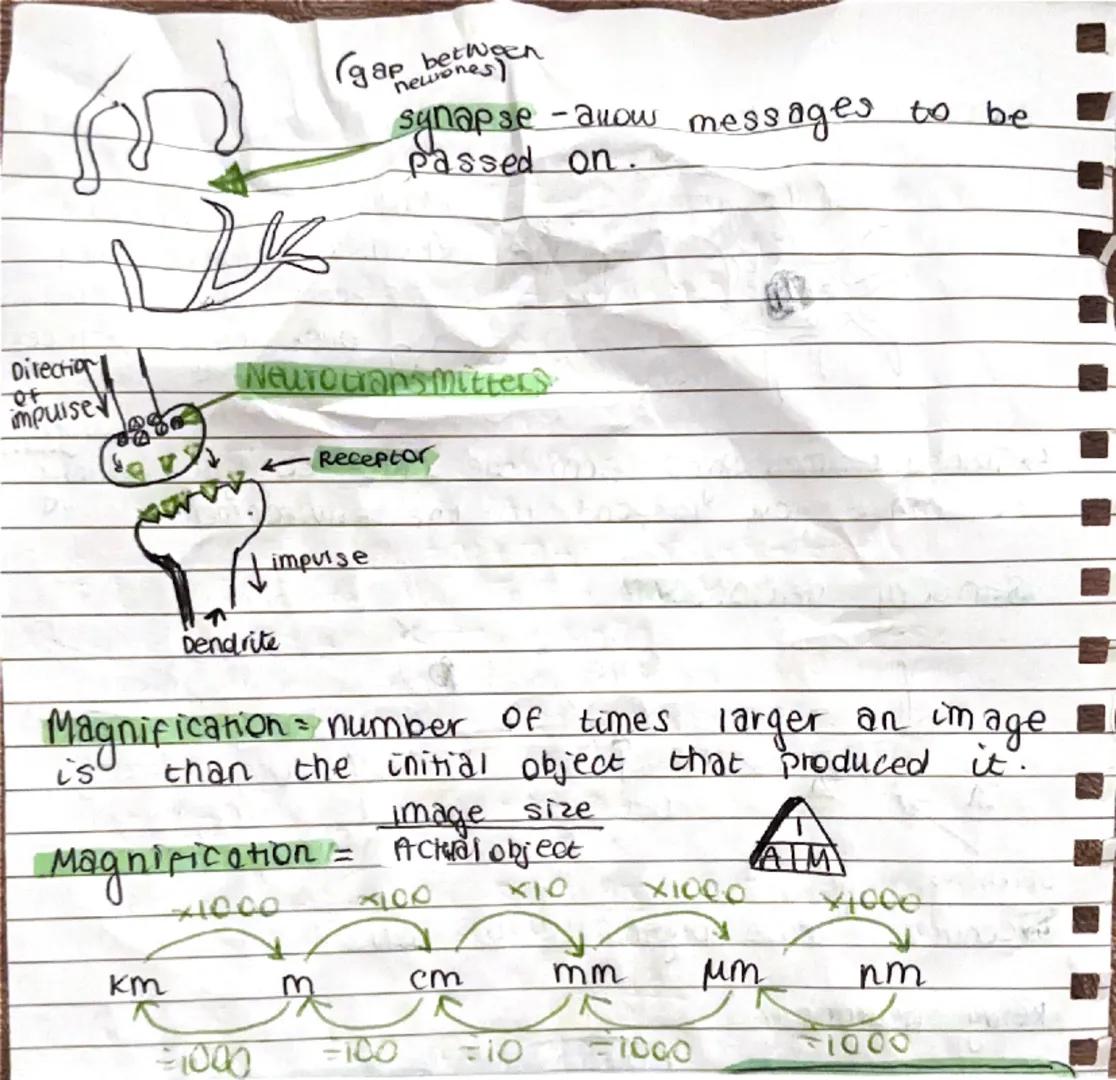 (gap between
neurones)
synapse - allow messages to be
passed on.
Direction
of
impulse
Neurotransmitters
Receptor
impulse
Dendrite
Magnification = number of times larger an image
is than the initial object that produced it.
Magnification = image size
Actual object
I
A M
×1000 ×100 ×10 ×1000 ×1000
km m cm mm μm nm
÷1000 ÷100 ÷10 ÷1000 ÷1000